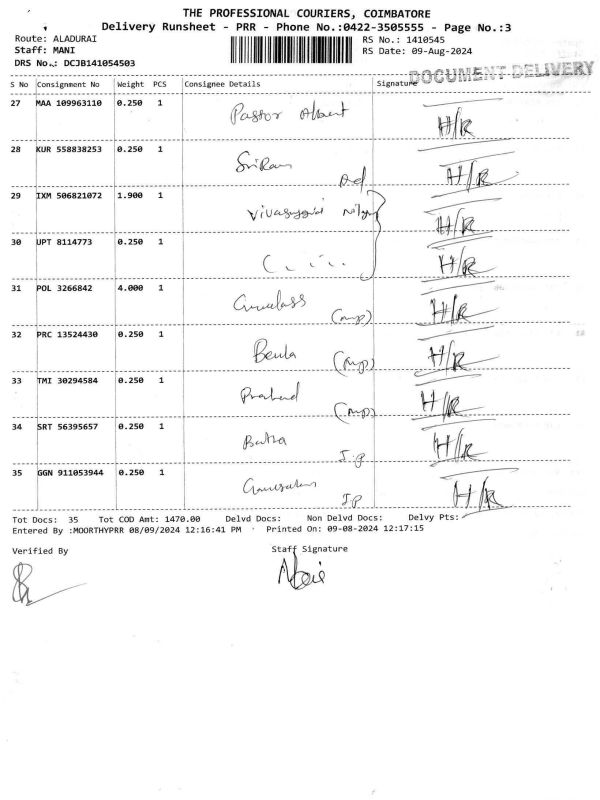 THE PROFESSIONAL COURIERS, COIMBATORE
Delivery Runsheet - PRR - Phone No.:0422-3505555 - Page No.:3
Route: ALADURAI RS No.: 1410545
Staff: MANI RS Date: 09-Aug-2024
DRS No.: DCJB141054503
DOCUMENT DELIVERY
S No Consignment No Weight PCS Consignee Details Signature
27 MAA 109963110 0.250 1 Pastor Albert H/R
28 KUR 558838253 0.250 1 SriRam H/R
29 IXM 506821072 1.900 1 H/R
30 UPT 8114773 0.250 1 H/R
31 POL 3266842 4.000 1 (mp) H/R
32 PRC 13524430 0.250 1 Beula (mp) H/R
33 TMI 30294584 0.250 1 (mp) H/R
34 SRT 56395657 0.250 1 I.P H/R
35 GGN 911053944 0.250 1 IP H/R
Tot Docs: 35 Tot COD Amt: 1470.00 Delvd Docs: Non Delvd Docs: Delvy Pts:
Entered By :MOORTHYPRR 08/09/2024 12:16:41 PM Printed On: 09-08-2024 12:17:15
Verified By Staff Signature